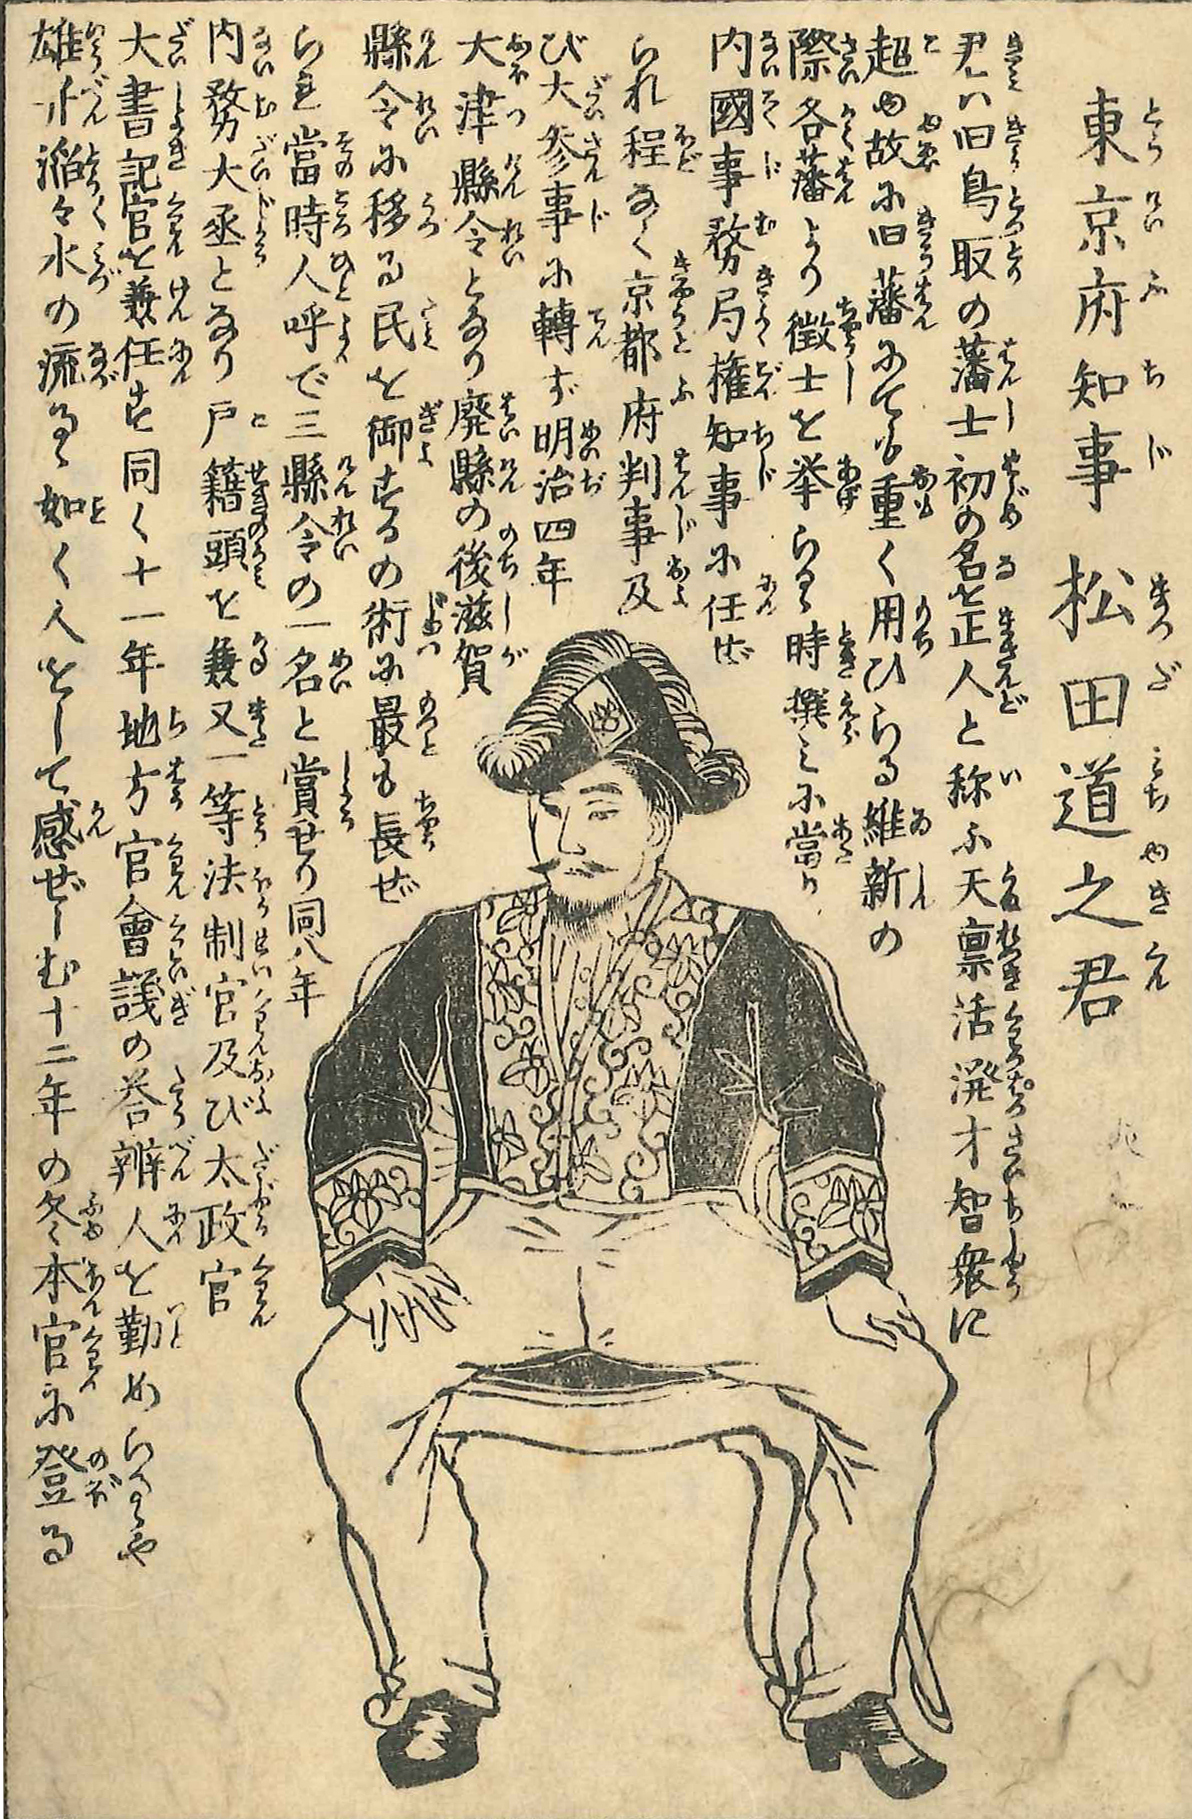 東京府知事 松田道之君
君ハ旧鳥取の藩士初の名を正人と称ふ天禀活溌才智衆に
超ゆ故に旧藩にても重く用ひらる維新の
際各藩より徴士を挙らるゝ時撰ミに當り
内國事務局権知事に任ぜ
られ程なく京都府判事及
び大参事に轉ず明治四年
大津縣令となり廃縣の後滋賀
縣令に移る民を御するの術に最も長ぜ
らる當時人呼で三縣令の一名と賞せり同八年
内務大丞となり戸籍頭を兼又一等法制官及び太政官
大書記官を兼任す同く十一年地方官會議の荅辨人を勤めらるゝや
雄弁滔々水の流るゝ如く人をして感ぜしむ十二年の冬本官に登る